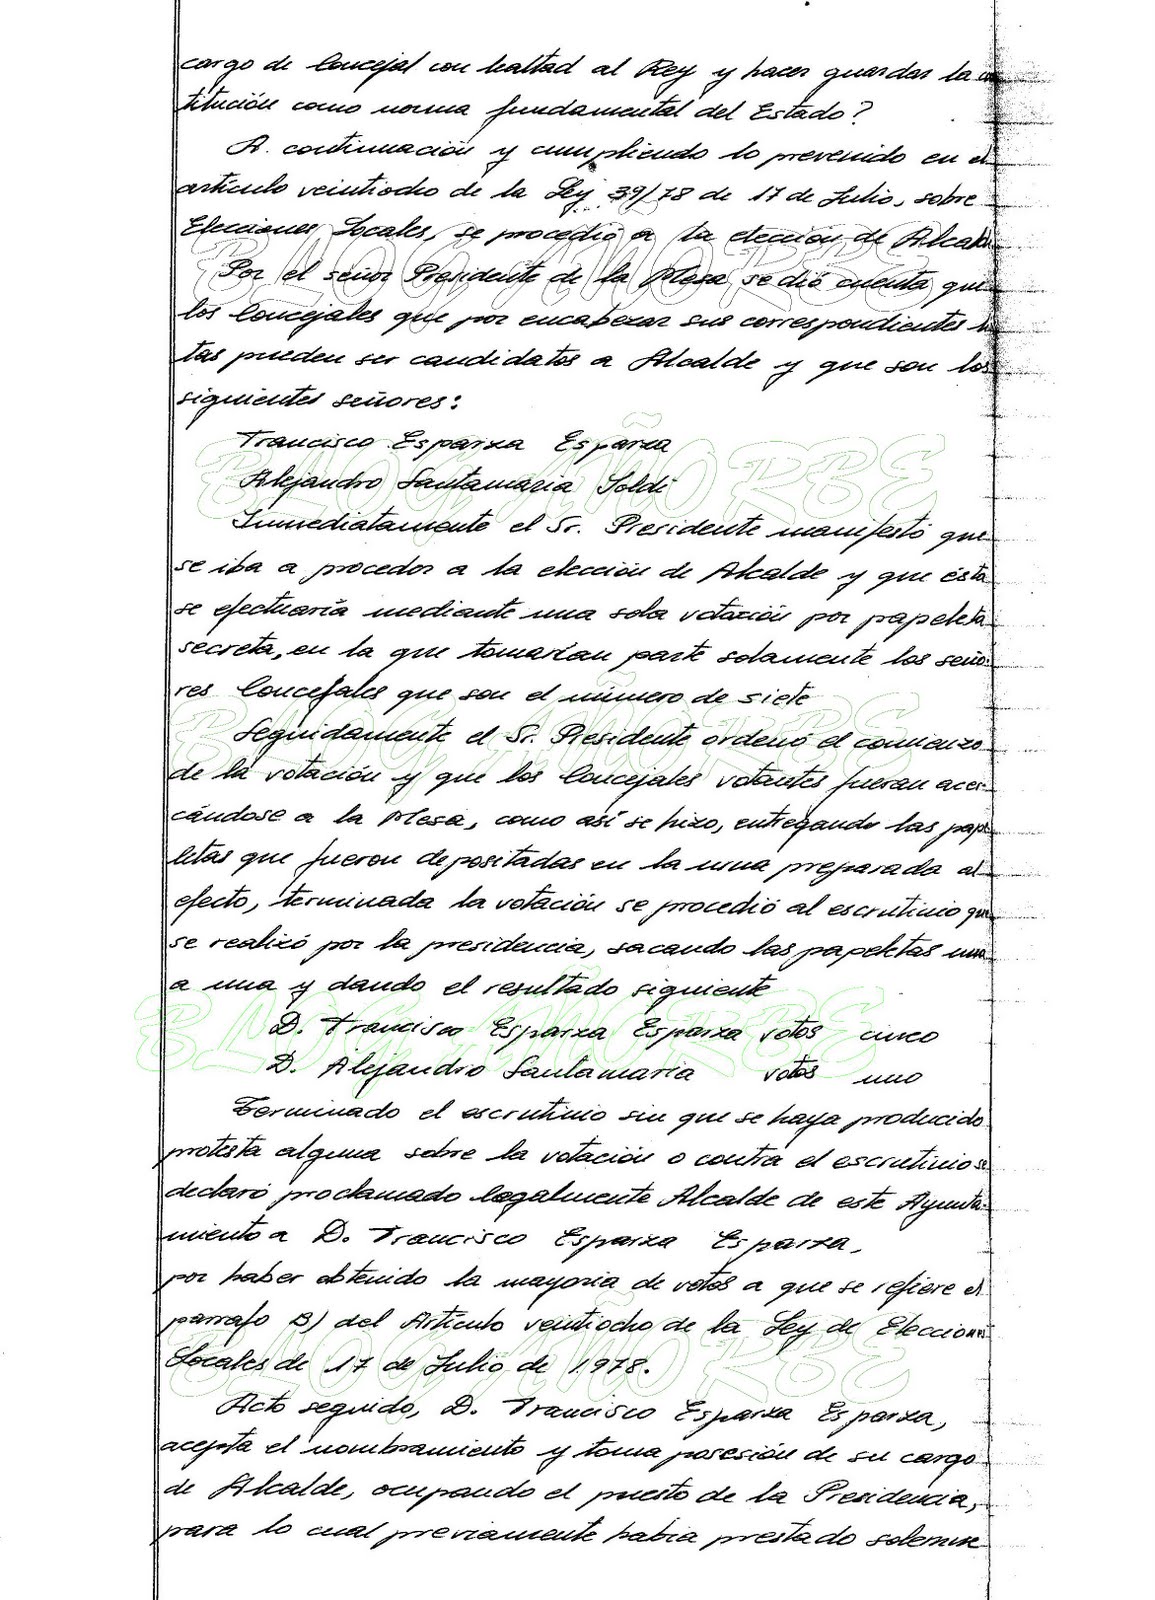 cargo de Concejal con lealtad al Rey y hacer guardar la
titución como norma fundamental del Estado?
A. continuación y cumpliendo lo prevenido en el
artículo veintiocho de la Ley 39/78 de 17 de Julio, sobre
Elecciones Locales, se procedió a la elección de Alcal
Por el señor Presidente de la Mesa se dió cuenta que
los Concejales que por encabezar sus correspondientes
tas pueden ser candidatos a Alcalde y que son los
siguientes señores:
Francisco Esparza Esparza
Alejandro Santamaria Soldi
Inmediatamente el Sr. Presidente manifestó que
se iba a proceder a la elección de Alcalde y que ésta
se efectuaría mediante una sola votación por papeleta
secreta, en la que tomarían parte solamente los seño-
res Concejales que son el número de siete
Seguidamente el Sr. Presidente ordenó el comienzo
de la votación y que los Concejales votantes fueran acer-
cándose a la Mesa, como así se hizo, entregando las pape
letas que fueron depositadas en la urna preparada al
efecto, terminada la votación se procedió al escrutinio que
se realizó por la presidencia, sacando las papeletas una
a una y dando el resultado siguiente
D. Francisco Esparza Esparza votos cinco
D. Alejandro Santamaria votos uno
Terminado el escrutinio sin que se haya producido
protesta alguna sobre la votación o contra el escrutinio se
declaró proclamado legalmente Alcalde de este Ayunta-
miento a D. Francisco Esparza Esparza,
por haber obtenido la mayoria de votos a que se refiere el
parrafo B) del Artículo veintiocho de la Ley de Elecciones
Locales de 17 de Julio de 1.978.
Acto seguido, D. Francisco Esparza Esparza,
acepta el nombramiento y toma posesión de su cargo
de Alcalde, ocupando el puesto de la Presidencia,
para lo cual previamente habia prestado solemne